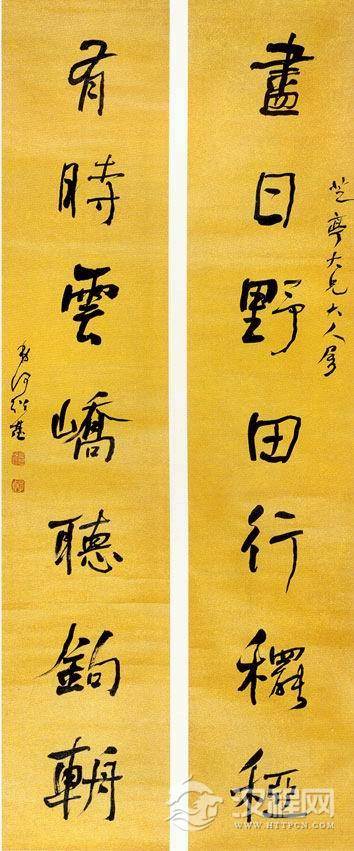 盡日野田行䆉稏
芝亭大兄大人屬
有時雲嶠聽鉤輈
弟何紹基
汉程网
HTTPCN.COM